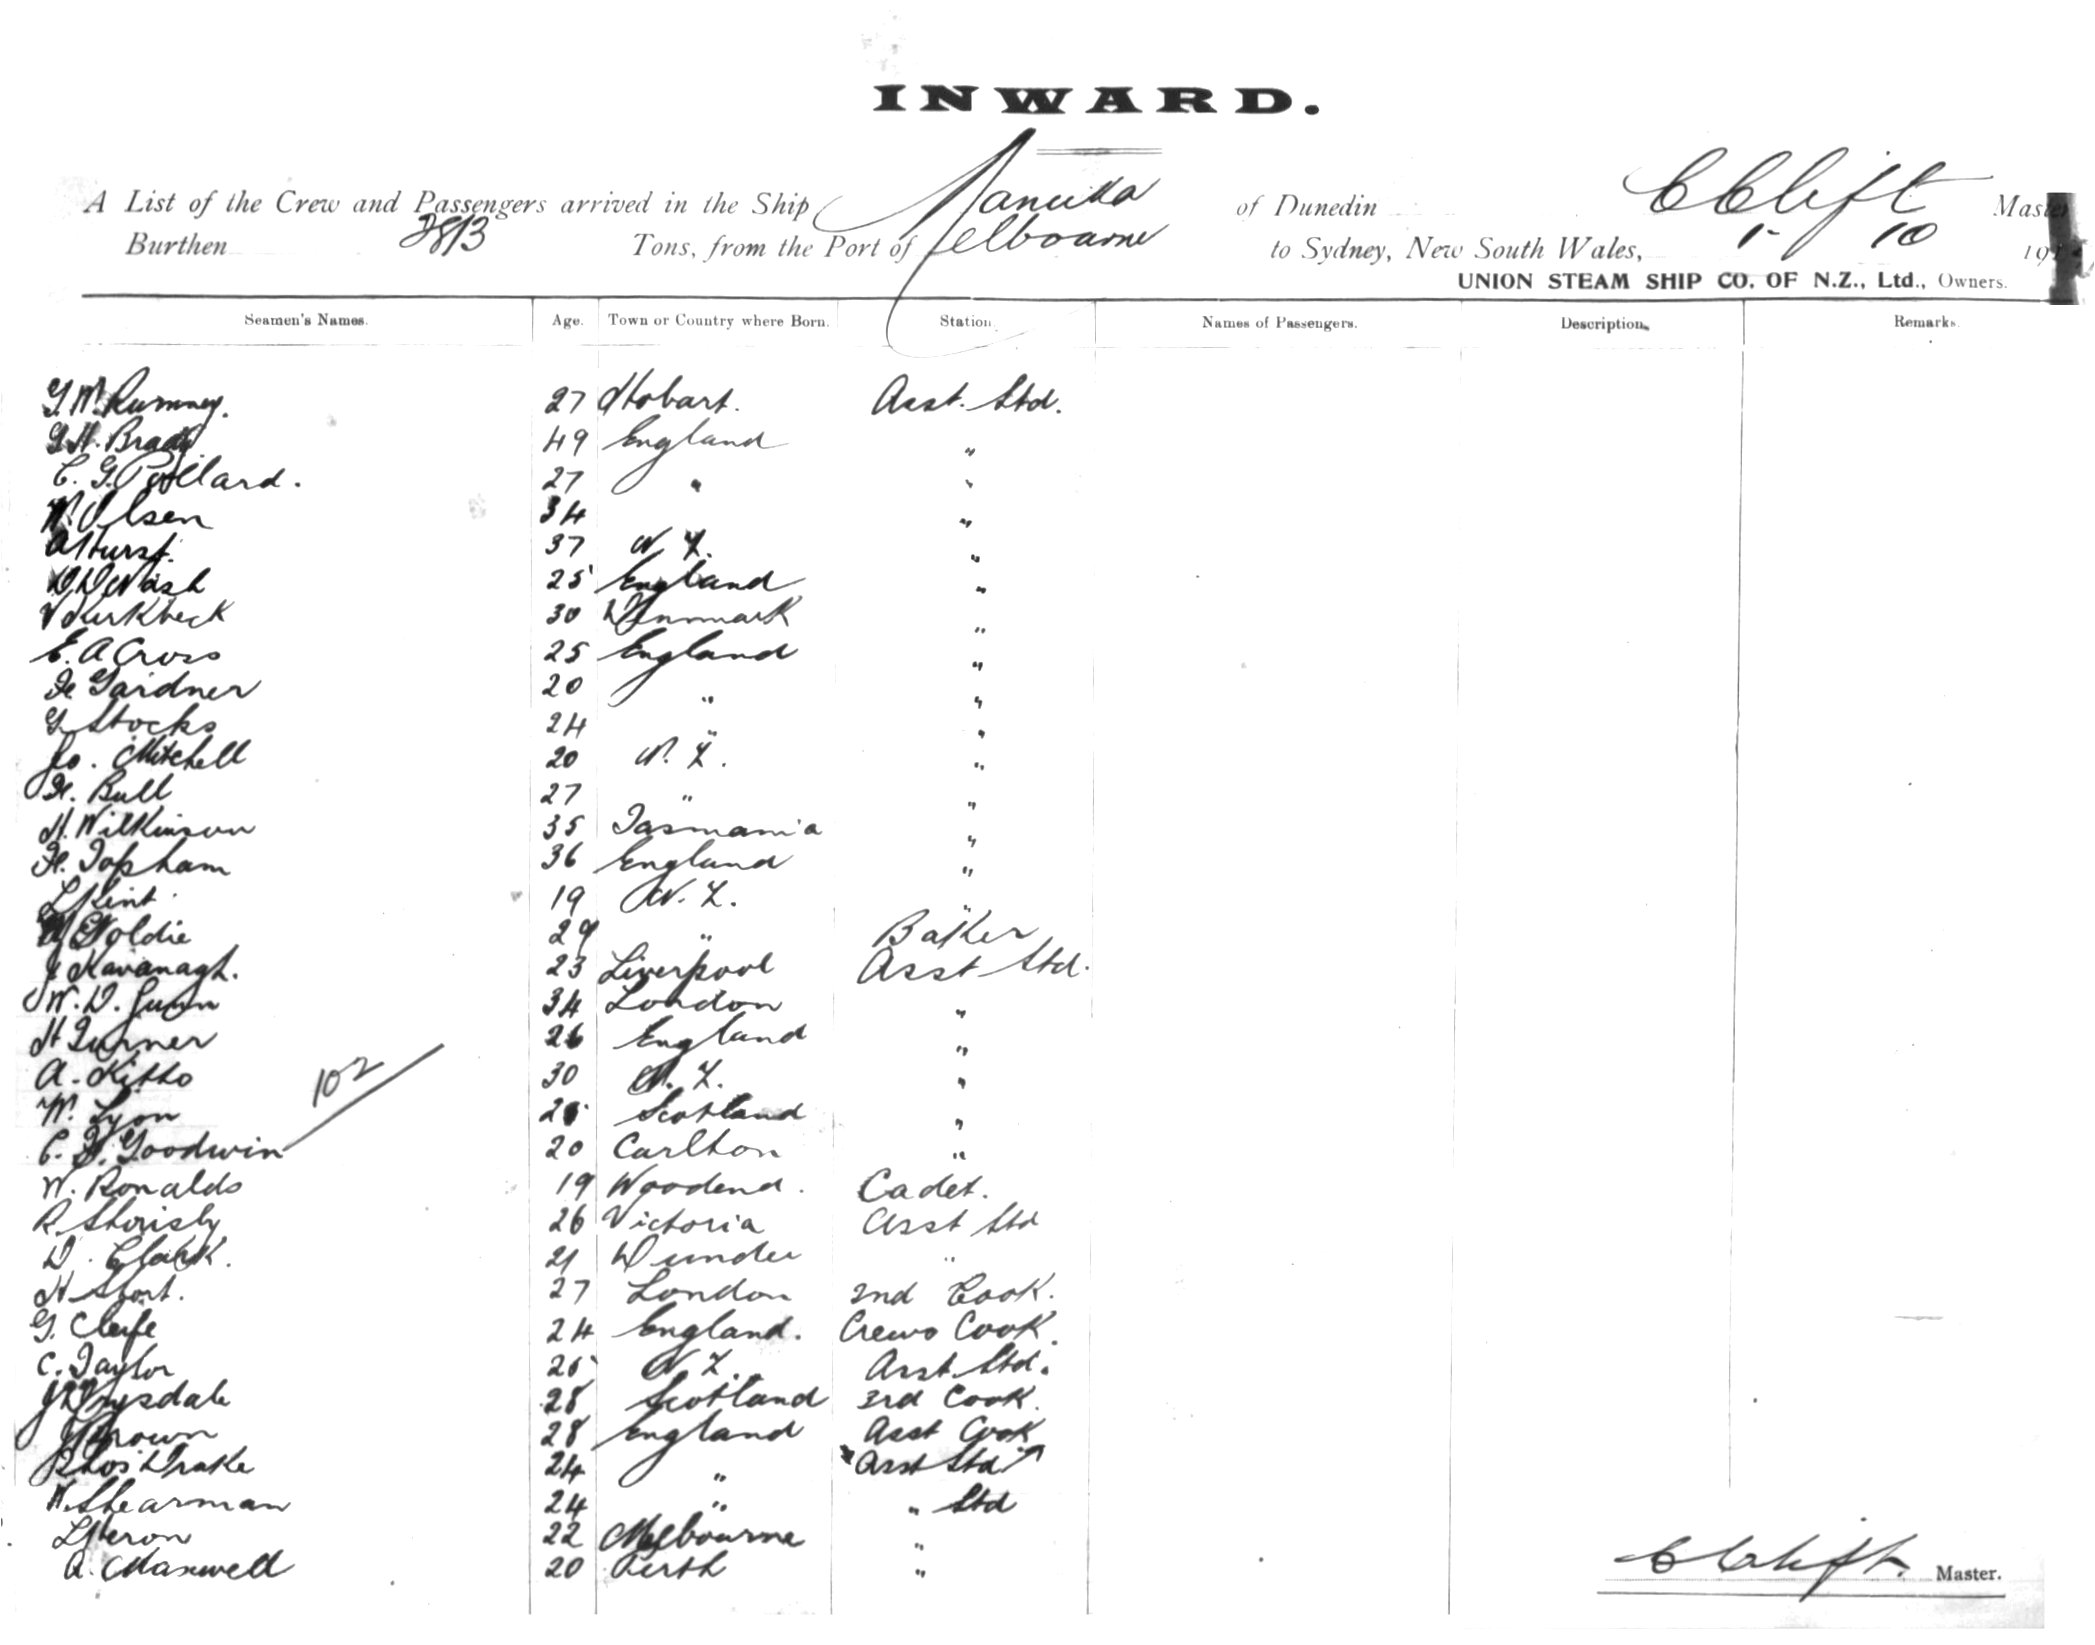 INWARD.
A List of the Crew and Passengers arrived in the Ship Manuka of Dunedin C Clift Master
Burthen 2813 Tons, from the Port of Melbourne to Sydney, New South Wales, 1 - 10 191
UNION STEAM SHIP CO. OF N.Z., Ltd., Owners.
Seamen's Names. Age. Town or Country where Born. Station. Names of Passengers. Description. Remarks.
G. W. Rumney. 27 Hobart. Asst. Std.
G. H. Brady 49 England "
C. G. Pollard. 27 " "
W. Olsen 34 "
A Hurst. 37 N. Z. "
D. D. Nash 25 England "
V Kurkbeck 30 Denmark "
E. A Cross 25 England "
F. Gardner 20 " "
G Stocks 24 " "
Jo. Mitchell 20 N. Z. "
F. Bull 27 " "
H. Wilkinson 35 Tasmania "
F. Topham 36 England "
L Kint 19 N. Z. "
Goldie 29 " Baker
J Kavanagh. 23 Liverpool Asst Std.
W. D. Gunn 34 London "
H Turner 26 England "
A. Kitto 30 N. Z. "
102
W. Lyon Scotland "
C. F. Goodwin 20 Carlton "
W. Ronalds 19 Woodend. Cadet.
R 26 Victoria Asst Std
D. Clark. 21 Dundee "
H Stort. 27 London 2nd Cook.
G. Cleife 24 England. Crews Cook.
C. Taylor 25 N. Z. Asst. Std.
J Drysdale 28 Scotland 3rd Cook.
J Brown 28 England Asst Cook
Thos Drake 24 " Asst Std
W. Shearman 24 " " Std
L Heron 22 Melbourne "
A. Maxwell 20 Perth "
C Clift. Master.